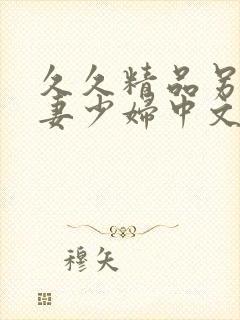 久久精品另
妻少婦中文
穆矢